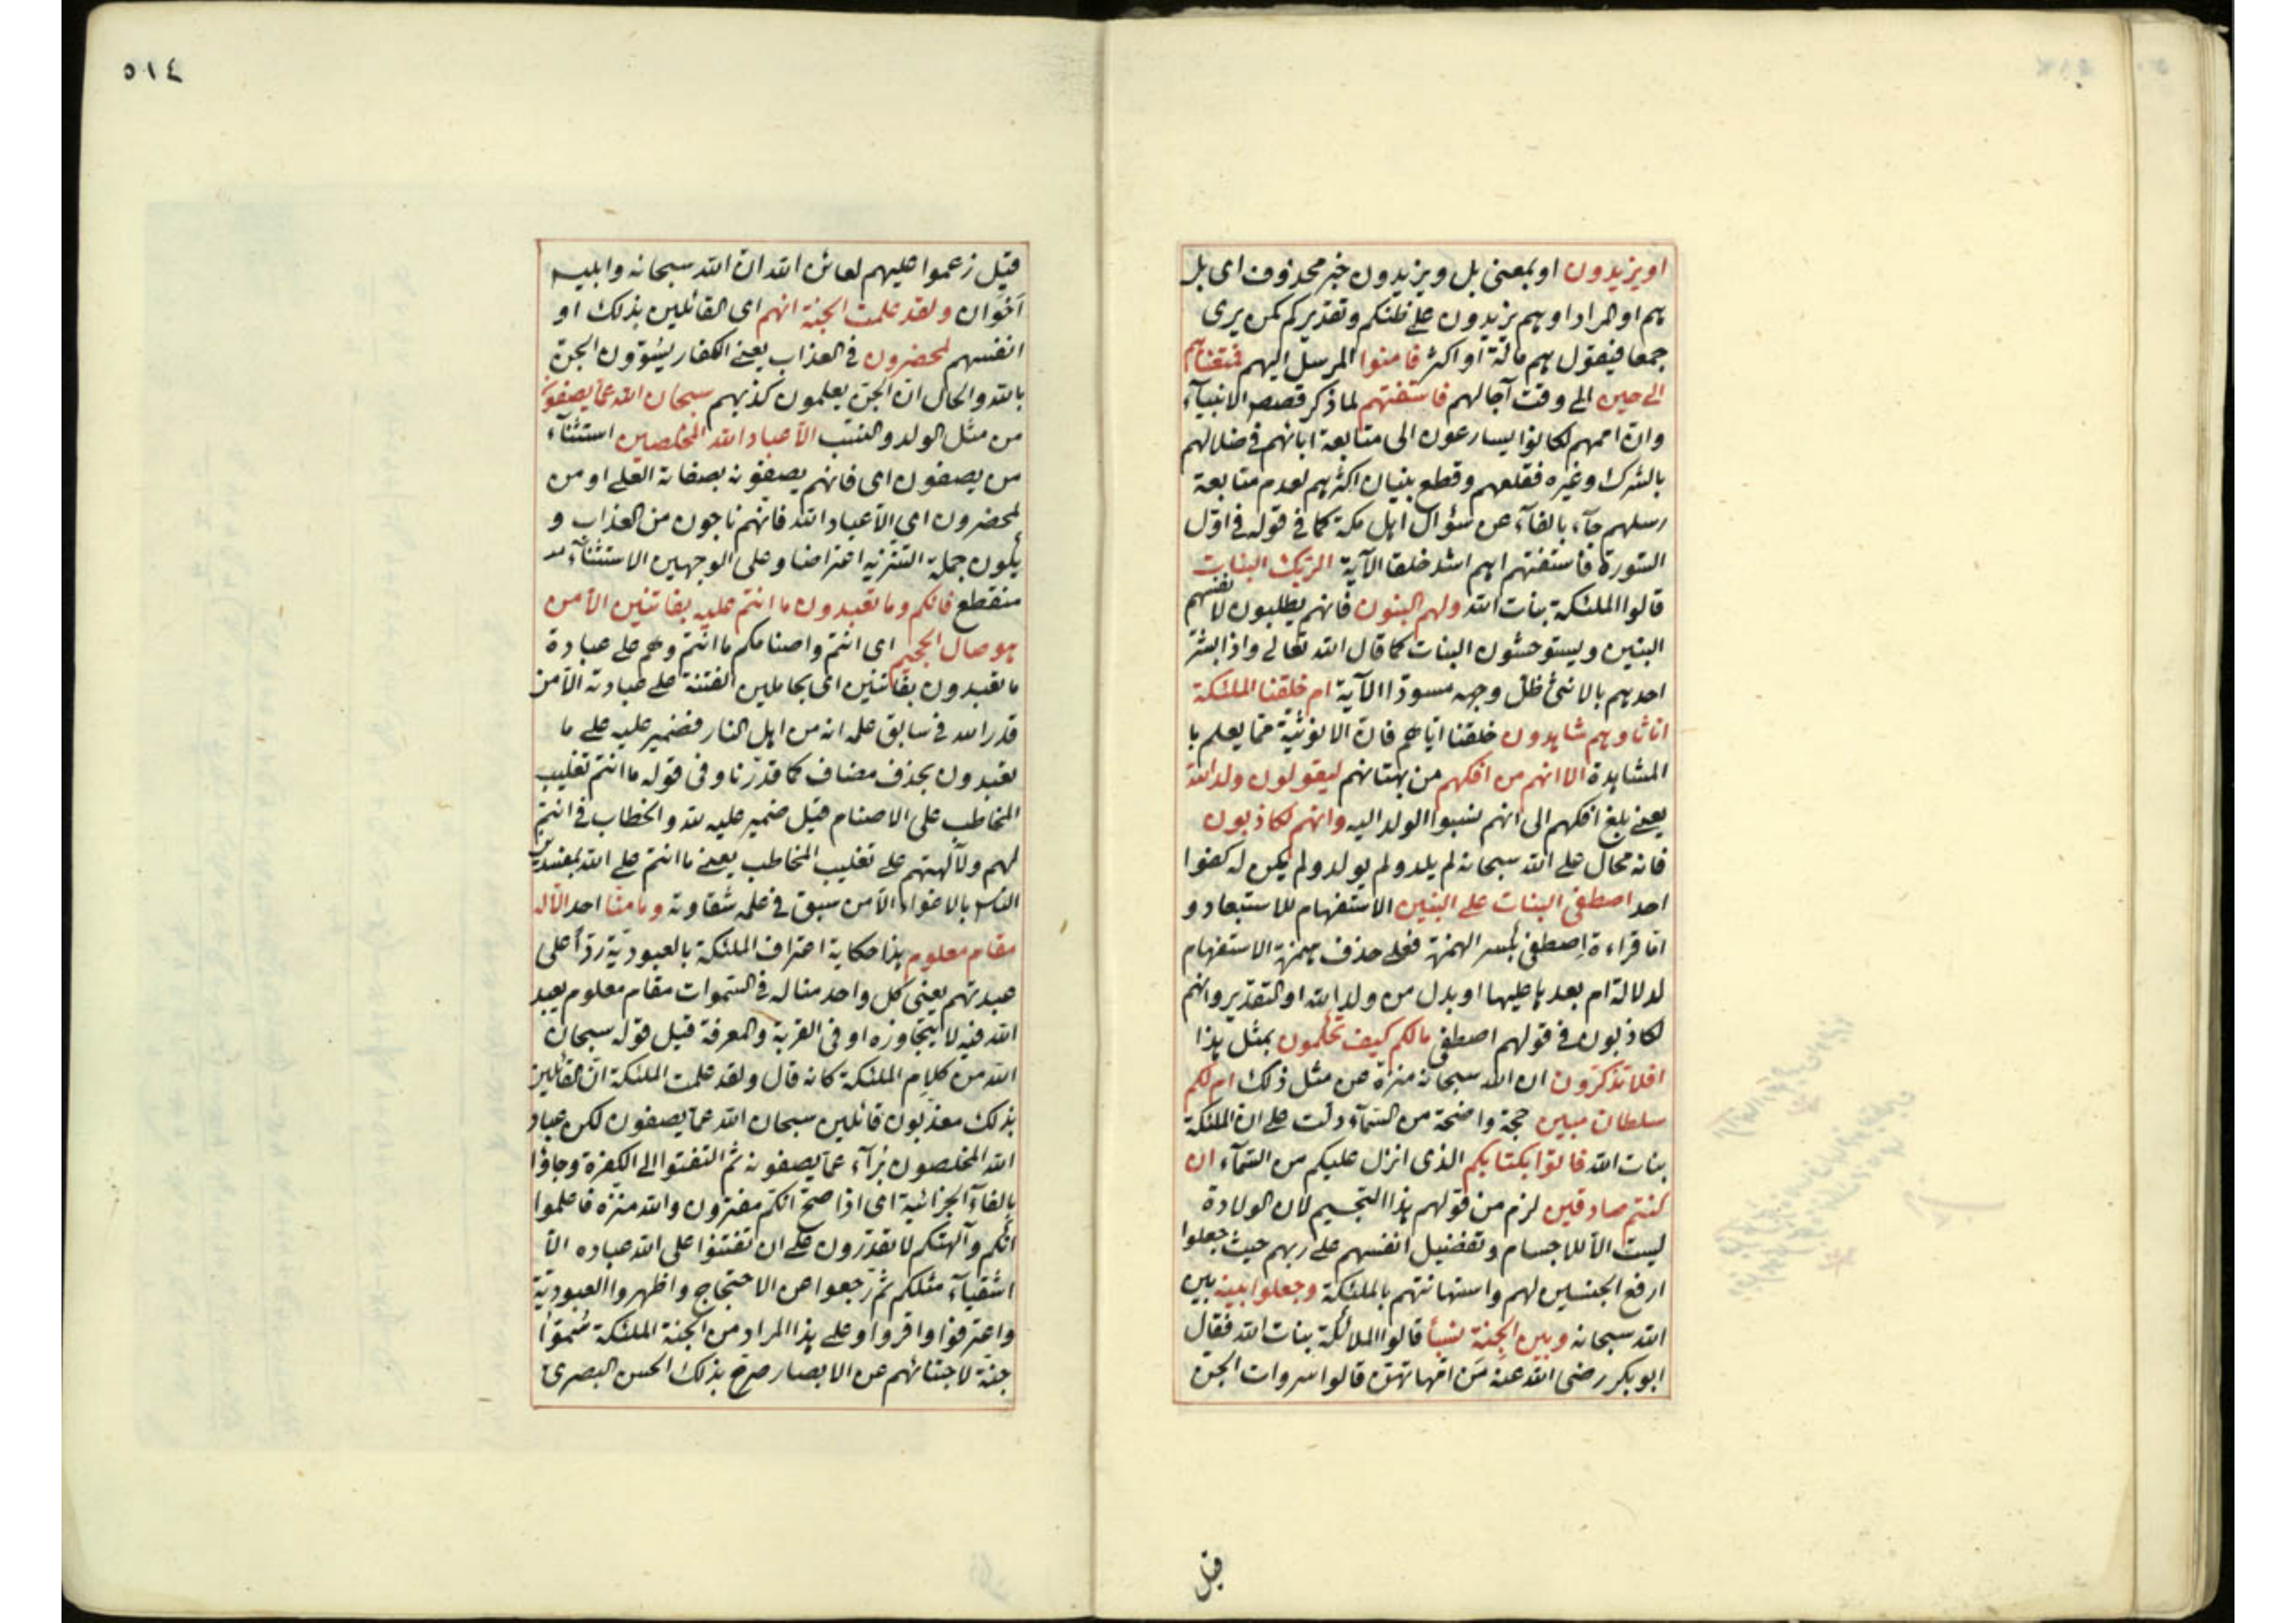 او يزيدون او بمعنى بل ويزيدون خبر محذوف اى بل
هم او المراد او هم يزيدون على ظنكم وتقديركم كمن يرى
جمعا فيقول هم مائة او اكثر فامنوا المرسل اليهم فمتعناهم
الى حين الى وقت آجالهم فاستفتهم لما ذكر قصص الانبيآء
وان اممهم كانوا يسارعون الى متابعة ابائهم فى ضلالهم
بالشرك وغيره فقلعهم وقطع بنيان اكثرهم لعدم متابعة
رسلهم جآء بالفآء عن سؤال اهل مكة كما فى قوله فى اوّل
السّورة فاستفتهم اهم اشد خلقا الآية الربك البنات
قالوا الملئكة بنات الله ولهم البنون فانهم يطلبون لانفسهم
البنين ويستوحشون البنات كما قال الله تعالى واذا بشّر
احدهم بالانثى ظلّ وجهه مسودّا الآية ام خلقنا الملئكة
اناثا وهم شاهدون خلقنا اياهم فان الانوثية ممّا يعلم با
المشاهدة الا انهم من افكهم من بهتانهم ليقولون ولد الله
يعنى بلغ افكهم الى انهم نسبوا الولد اليه وانهم لكاذبون
فانه محال على الله سبحانه لم يلد ولم يولد ولم يكن له كفوا
احد اصطفى البنات على البنين الاستفهام للاستبعاد و
امّا قراءة اصطفى بكسر الهمزة فعلى حذف همزة الاستفهام
لدلالة ام بعدها عليها او بدل من ولد الله او التقدير وانهم
لكاذبون فى قولهم اصطفى مالكم كيف تحكمون بمثل هذا
افلا تذكرون ان الله سبحانه منزه عن مثل ذلك ام لكم
سلطان مبين حجة واضحة من السّمآء دلت على ان الملئكة
بنات الله فاتوا بكتابكم الذى انزل عليكم من السّمآء ان
كنتم صادقين لزم من قولهم هذا التجسيم لان الولادة
ليست الّا للاجسام وتفضيل انفسهم على ربهم حيث جعلوا
ارفع الجنسين لهم واستهانتهم بالملئكة وجعلوا بينه بين
الله سبحانه وبين الجنة نسبأ قالوا الملائكة بنات الله فقال
ابو بكر رضى الله عنه من امّهاتهنّ قالوا سروات الجن
قيل
٥١٤
قيل زعموا عليهم لعائن الله ان الله سبحانه وابليس
اخوان ولقد علمت الجنة انهم اى القائلين بذلك او
انفسهم لمحضرون فى العذاب يعنى الكفار يسوّون الجنّ
بالله والحال ان الجنّ يعلمون كذبهم سبحان الله عمّا يصفون
من مثل الولد والنسب الّا عباد الله المخلصين استثنآء
من يصفون اى فانهم يصفونه بصفاته العلى او من
لمحضرون اى الّا عباد الله فانهم ناجون من العذاب و
يكون جملة التنزيه اعتراضا وعلى الوجهين الاستثنآء
منقطع فانكم وما تعبدون ما انتم عليه بفاتنين الّا من
هو صال الجحيم اى انتم واصنامكم ما انتم وهم على عبادة
ما تعبدون بفاتنين اى بحاملين الفتنة على عبادته الّا من
قدر الله فى سابق علمه انه من اهل النار فضمير عليه على ما
تعبدون بحذف مضاف كما قدّرنا وفى قوله ما انتم تغليب
المخاطب على الاصنام قيل ضمير عليه لله والخطاب فى انتم
لهم ولآلهتهم على تغليب المخاطب يعنى ما انتم على الله بمفسدين
الناس بالاغواء الّا من سبق فى علمه شقاوته وما منّا احد الّا له
مقام معلوم هذا حكاية اعتراف الملئكة بالعبوديّة ردّاً على
عبدتهم يعنى كل واحد منا له فى السّموات مقام معلوم يعبد
الله فيه لا يتجاوزه او فى القربة والمعرفة قيل قوله سبحان
الله من كلام الملئكة كانه قال ولقد علمت الملئكة ان القائلين
بذلك معذبون قائلين سبحان الله عمّا يصفون لكن عباد
الله المخلصون برآء عمّا يصفونه ثم التفتوا الى الكفرة وجاؤا
بالفآء الجزائية اى اذا صحّ انكم مفترون والله منزّه فاعلموا
انكم وآلهتكم لا تقدّرون على ان تفتنوا على الله عباده الّا
اشقيآء مثلكم ثم رجعوا من الاحتجاج واظهروا العبوديّة
واعترفوا واقروا وعلى هذا المراد من الجنة الملئكة سُمّوا
جنة لاجتنانهم عن الابصار صرّح بذلك الحسن البصرى